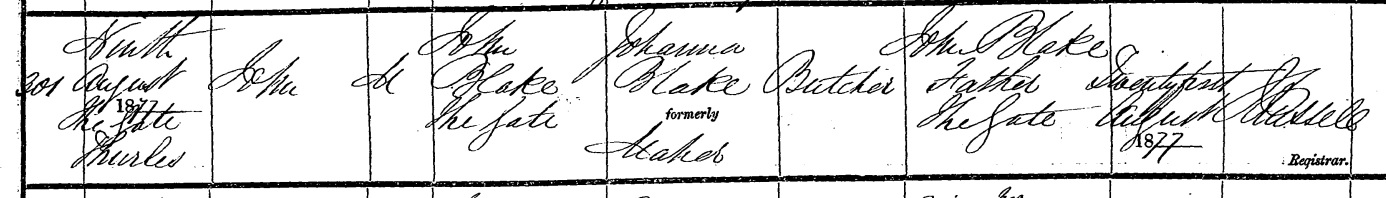 301
Ninth
August
1877
The Gate
Thurles
John
M
John
Blake
The Gate
Johanna
Blake
formerly
Maher
Butcher
John Blake
Father
The Gate
Twenty first
August
1877
Registrar.